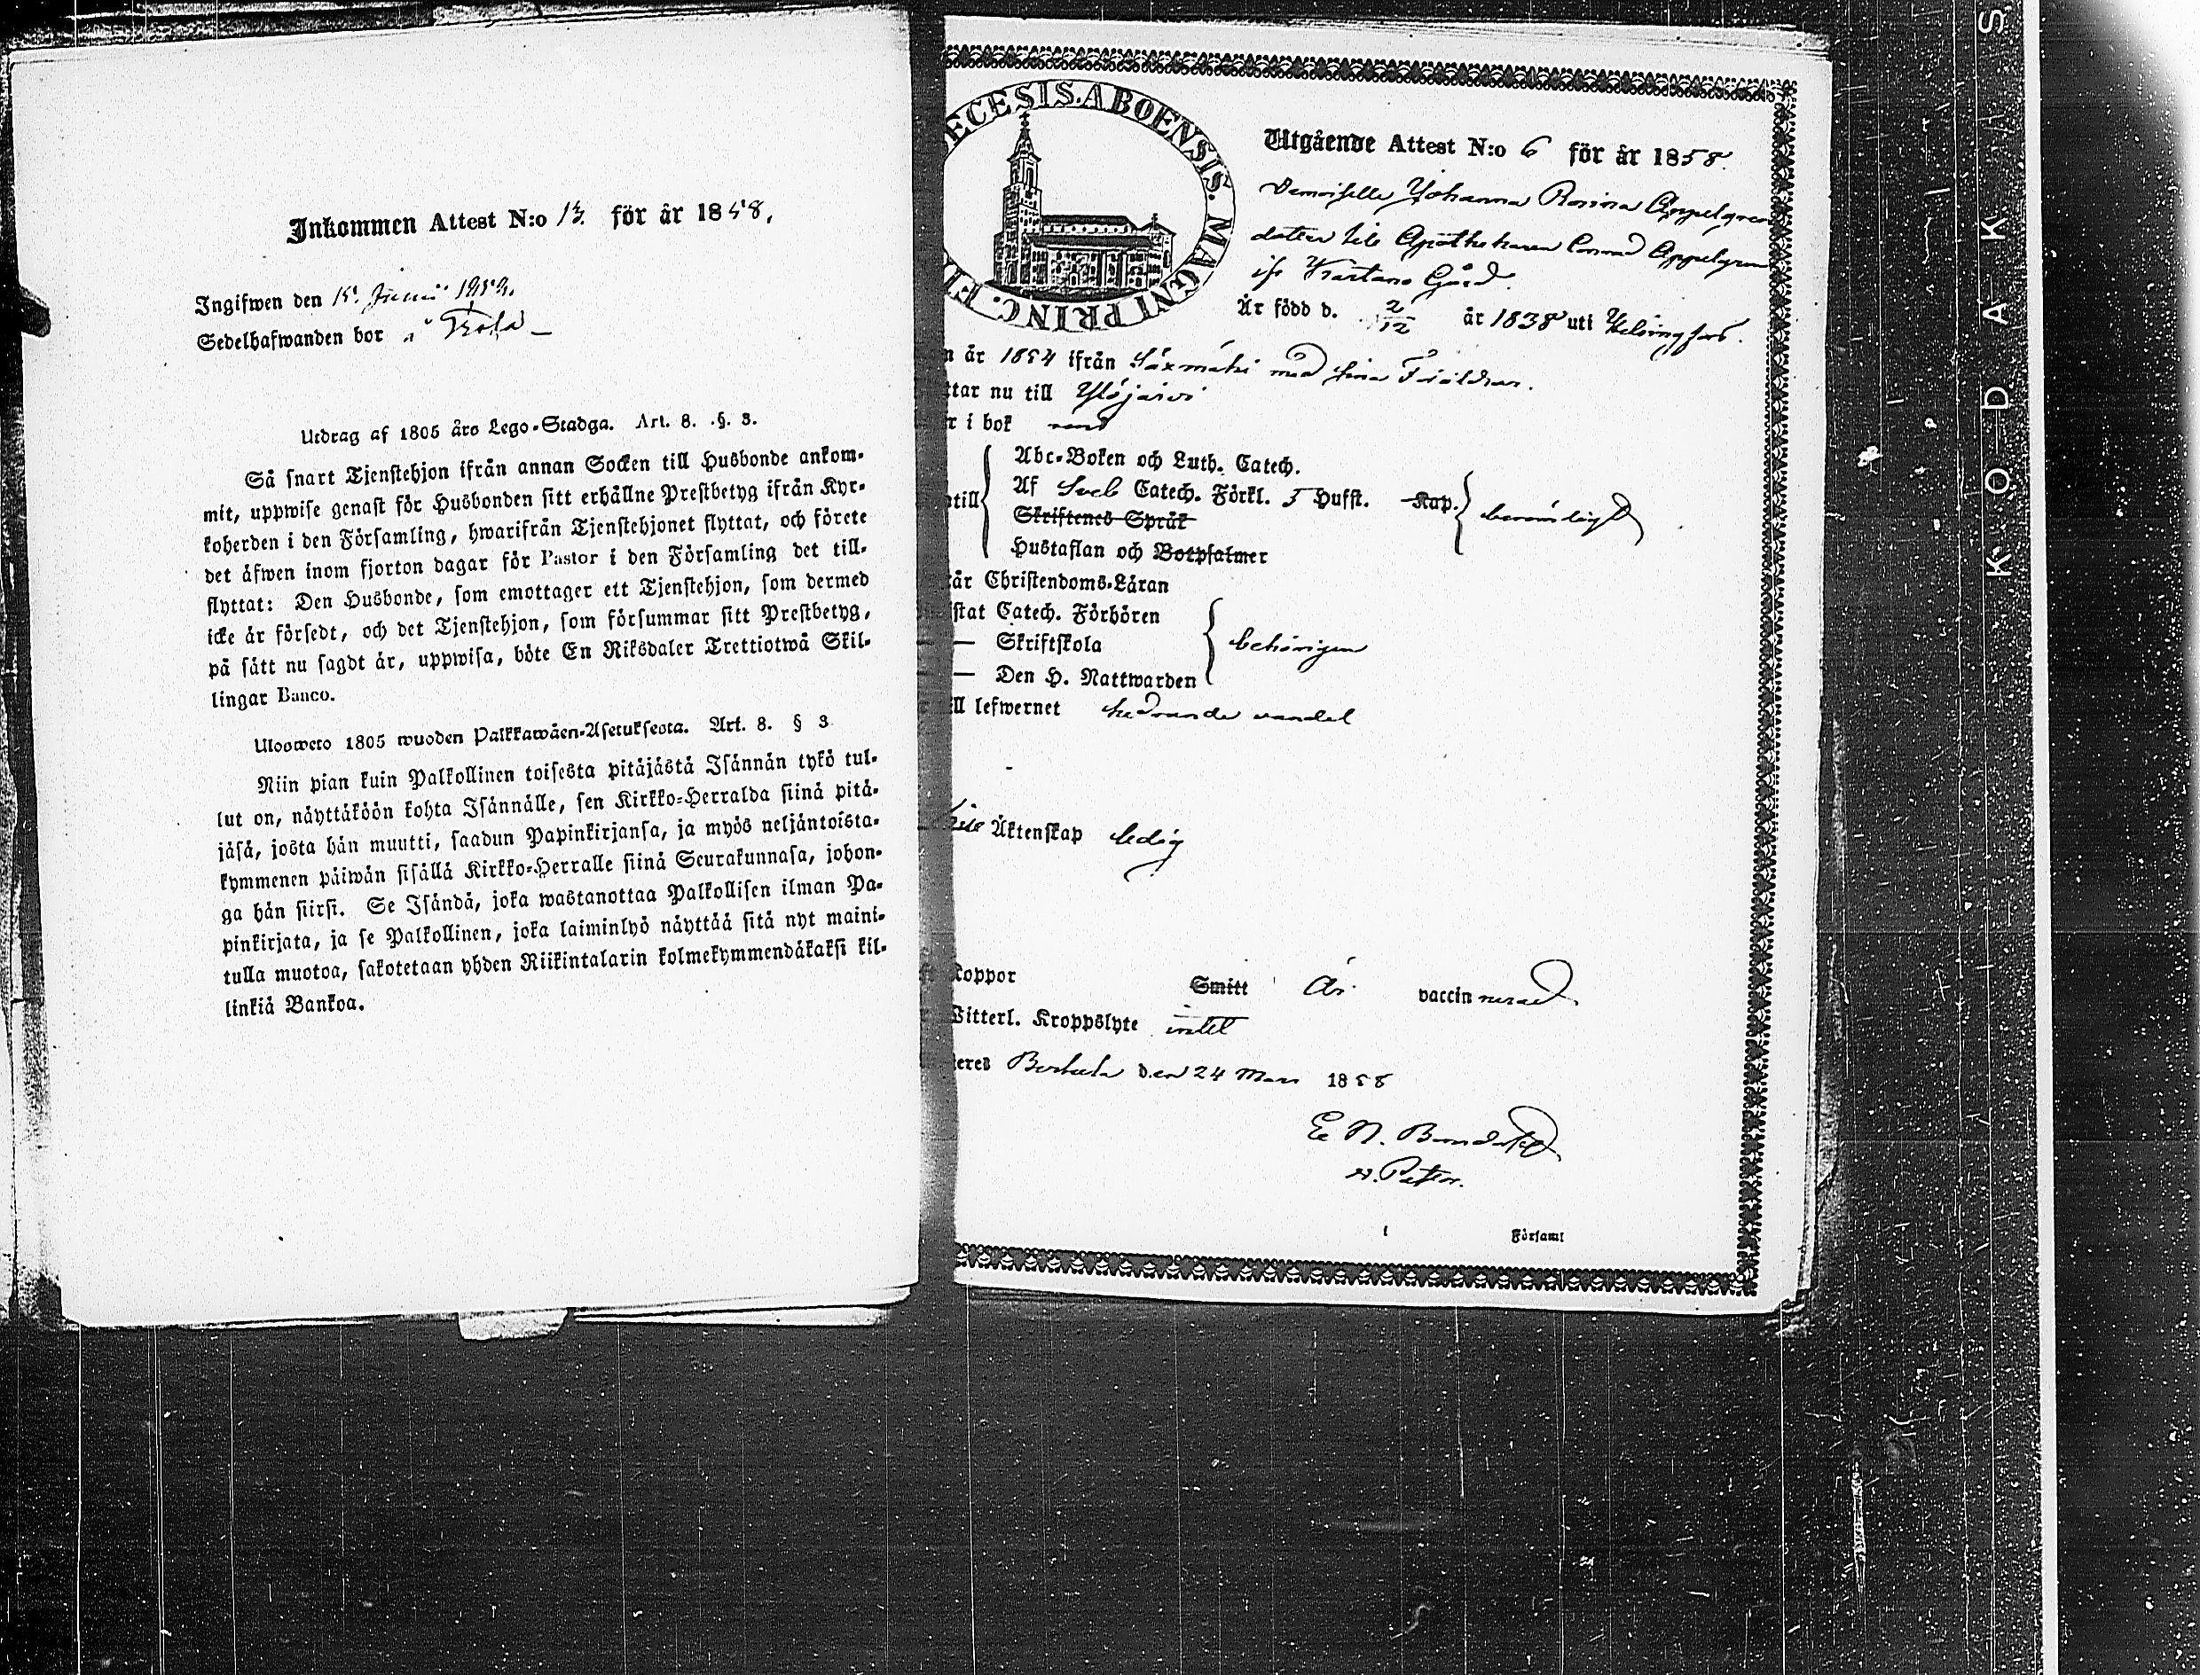 Inkommen Attest N:o 13. för år 1858.
Ingifwen den 15. Junii 1858.
Sedelhafwanden bor å Trola
Utdrag af 1805 års Lego-Stadga. Art. 8. §. 3.
Så snart Tjenstehjon ifrån annan Socken till Husbonde ankom-
mit, uppwise genast för Husbonden sitt erhållne Prestbetyg ifrån Kyr-
koherden i den Församling, hwarifrån Tjenstehjonet flyttat, och förete
det äfwen inom fjorton dagar för Pastor i den Församling det till-
flyttat: Den Husbonde, som emottager ett Tjenstehjon, som dermed
icke är försedt, och det Tjenstehjon, som försummar sitt Prestbetyg,
på sätt nu sagdt är, uppwisa, böte En Riksdaler Trettiotwå Skil-
lingar Banco.
Ulosweto 1805 wuoden Palkkawäen-Asetuksesta. Art. 8. § 3
Niin pian kuin Palkollinen toisesta pitäjästä Isännän tykö tul-
lut on, näyttäköön kohta Isännälle, sen Kirkko-Herralda siinä pitä-
jäsä, josta hän muutti, saadun Papinkirjansa, ja myös neljäntoista-
kymmenen päiwän sisällä Kirkko-Herralle siinä Seurakunnasa, johon-
ga hän siirsi. Se Isändä, joka wastanottaa Palkollisen ilman Pa-
pinkirjata, ja se Palkollinen, joka laiminlyö näyttää sitä nyt maini-
tulla muotoa, sakotetaan yhden Riikintalarin kolmekymmendäkaksi kil-
linkiä Bankoa.
ECESIS. ABOENSIS. MAGNI PRINC. FI
Utgående Attest N:o 6 för år 1858.
Demoiselle Johanna Rosina Appelgren
dotter till Apothekaren Conrad Appelgren
ifr Kartano Gård.
Är född d. 2/12 år 1838 uti Helsingfors.
n år 1854 ifrån Sääxmäki med sina Föräldrar.
ttar nu till Ylöjärvi
r i bok
Abc-Boken och Luth. Catech.
ntill Af Sveb Catech. Förkl. 5 Hufst. Kap. berömligt
Skriftenes Språk
Hustaflan och Botpsalmer
tår Christendoms-Läran
istat Catech. Förhören
— Skriftskola behörigen
— Den H. Nattwarden
ill lefwernet hedrande vandel
Äktenskap ledig
Koppor Smitt Är vaccinnerad
Witterl. Kroppslyte intet
teres den 24 Mars 1858
E N.
Församl